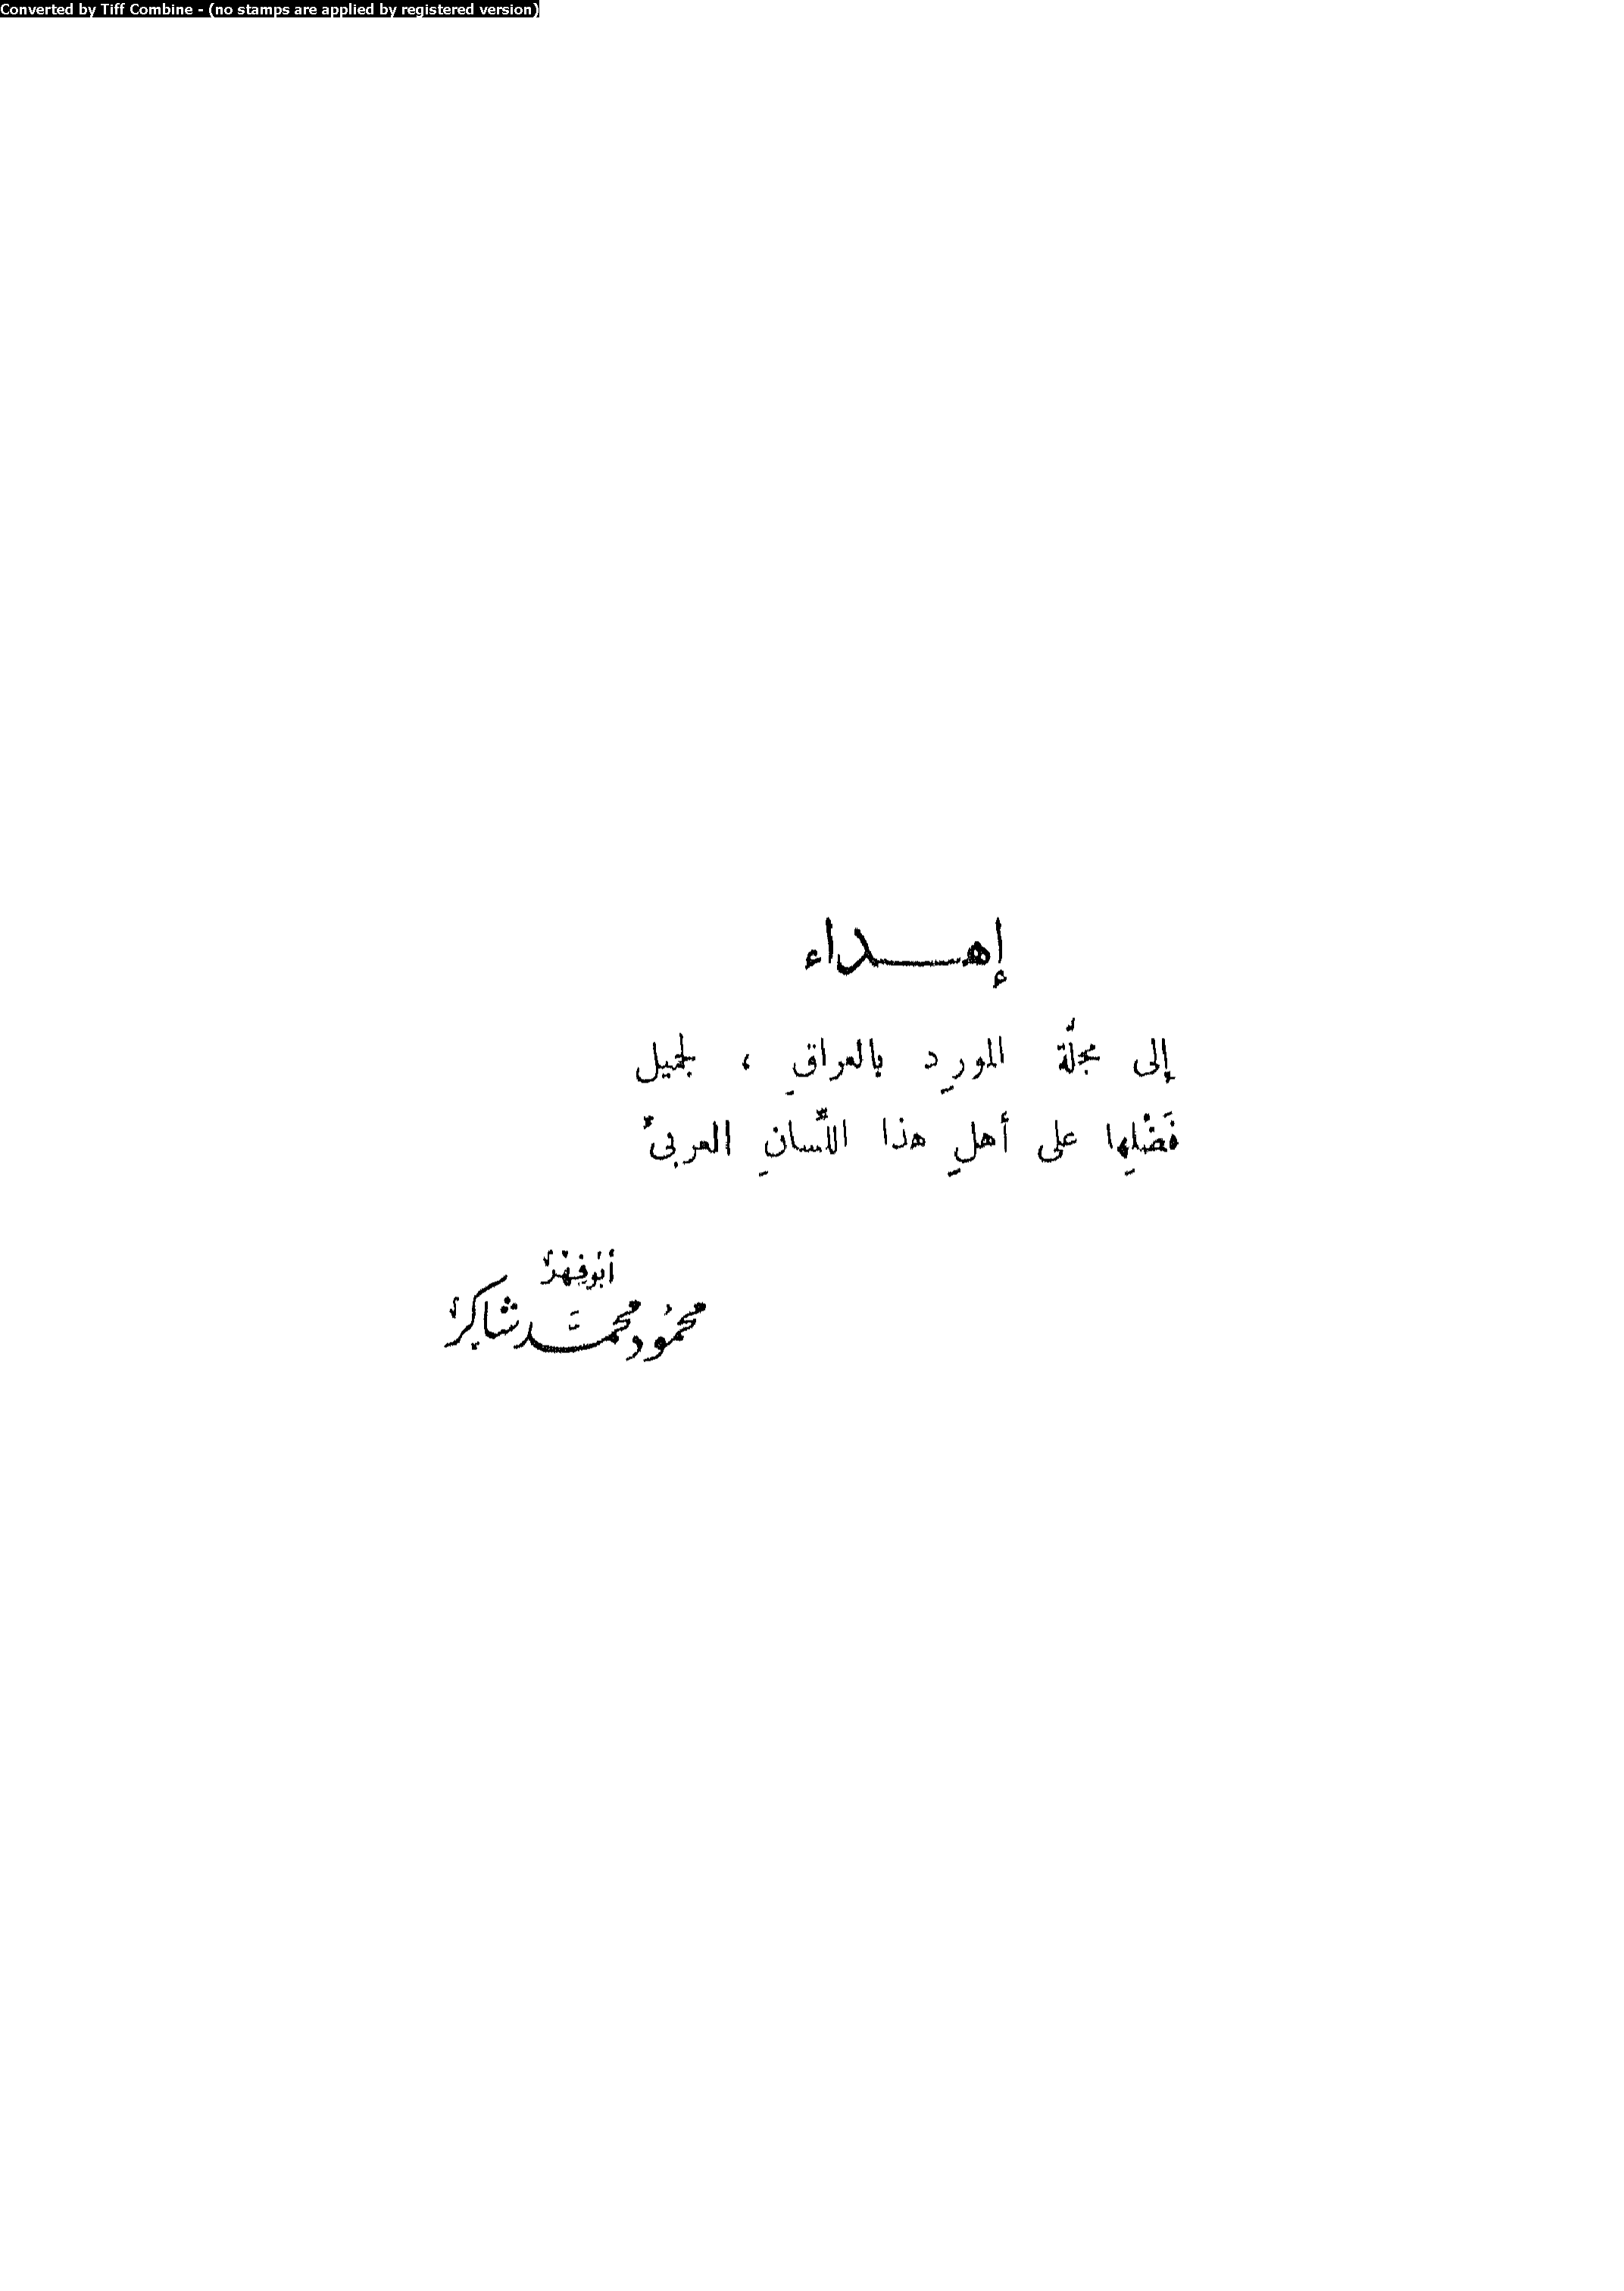 Converted by Tiff Combine - (no stamps are applied by registered version)
إهـــداء
إلى مجلَّة المورِد بالعراقِ ، لجميل
فَضْلِها على أهلِ هذا اللِّسانِ العربىّ
أبُو فِهْرٍ
محمُود محمَّد شاكِر